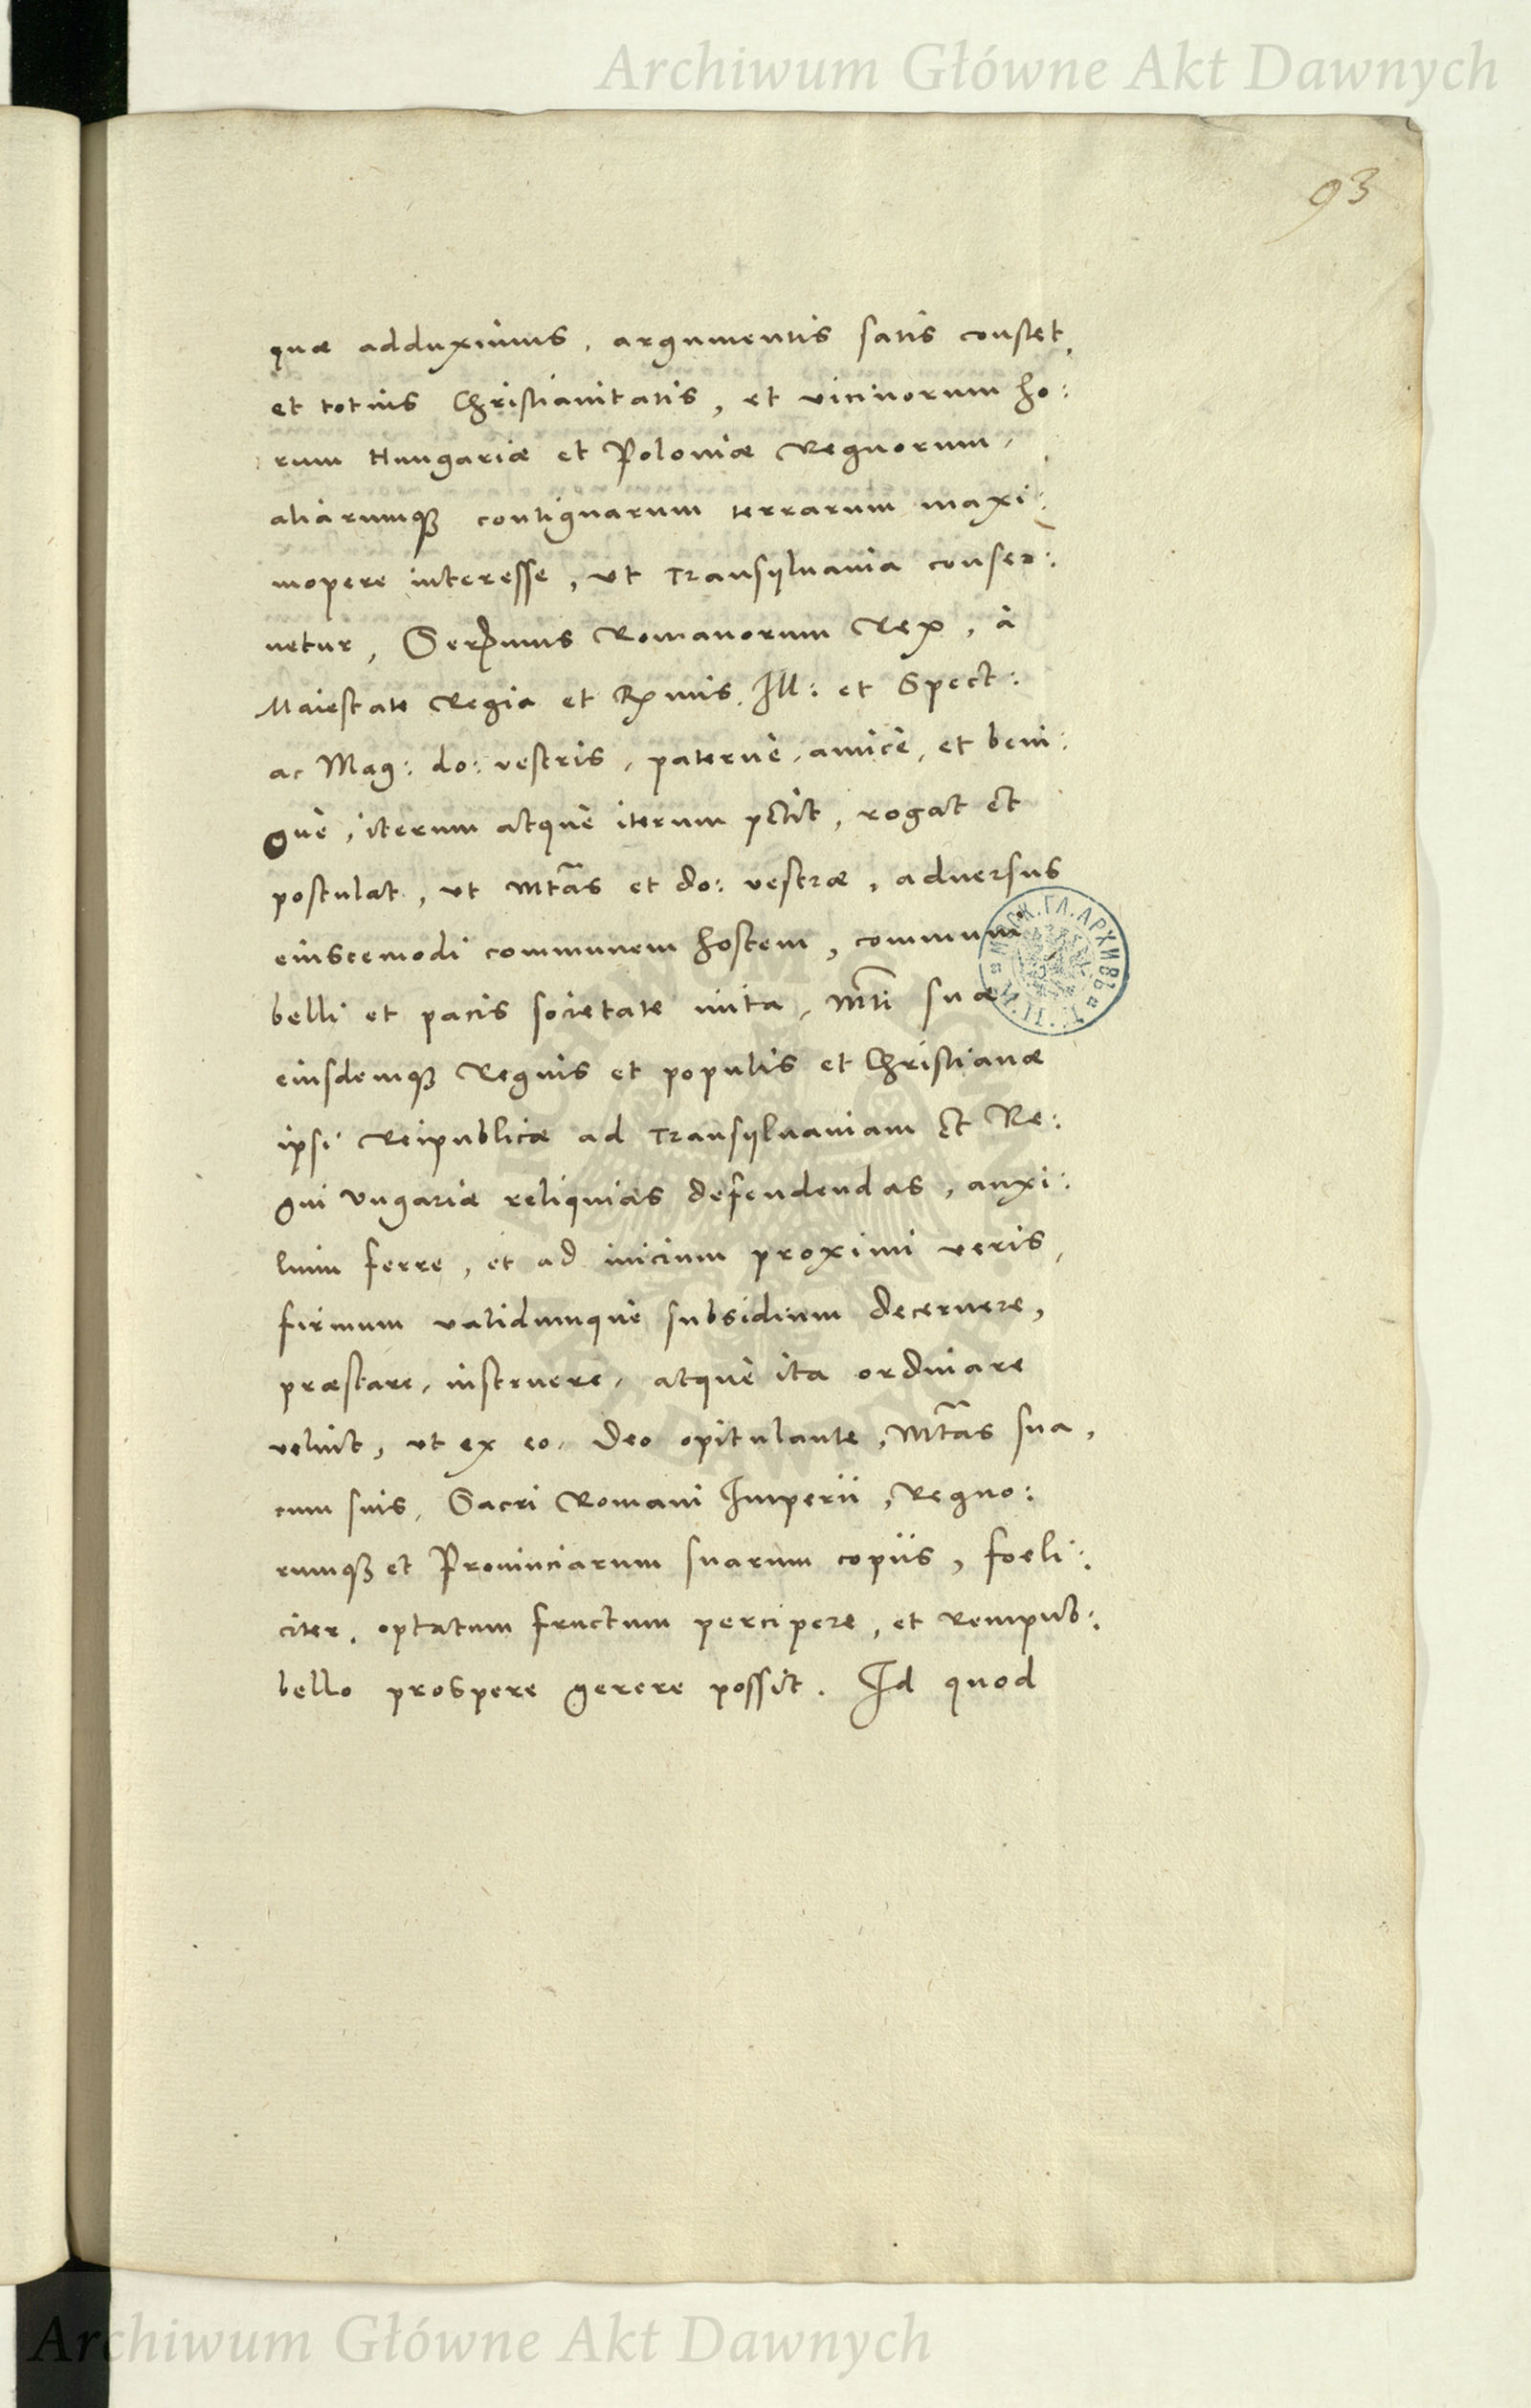 Archiwum Główne Akt Dawnych
93
quæ adduximus, argumentis satis constet,
et totius Christianitatis, et vicinorum ho:
rum Hungariæ et Poloniæ Regnorum,
aliarumqꝫ contiguarum terrarum maxi:
mopere interesse, vt Transyluania conser:
uetur, Serᵐᵘˢ Romanorum Rex, à
Maiestate Regia et Rᵐⁱˢ Ill: et Spect:
ac Mag: do: vestris, paternè, amicè, et beni:
gnè, iterum atquè iterum petit, rogat et
postulat, vt Mtas et do: vestræ, aduersus
eiuscemodi communem hostem, communi
belli et pacis societate inita, Mti suæ
eiusdemqꝫ Regnis et populis et Christianæ
ipsi Reipublicæ ad Transyluaniam et Re:
gni Vngariæ reliquias defendendas, auxi:
lium ferre, et ad inicium proximi veris,
firmum validumquè subsidium decernere,
præstare, instruere, atquè ita ordinare
velint, vt ex eo, Deo opitulante, Mtas sua,
cum suis, Sacri Romani Imperii, Regno:
rumqꝫ et Prouinciarum suarum copiis, foeli:
citer, optatum fructum percipere, et Rempub:
bello prospere gerere possit. Id quod
Archiwum Główne Akt Dawnych